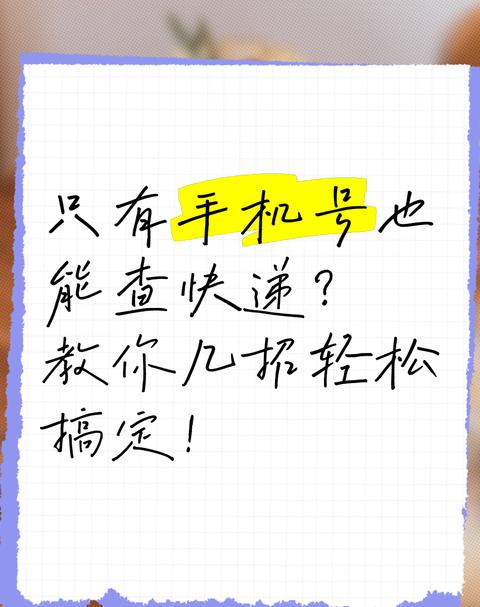 只有手机号也
能查快递?
教你几招轻松
搞定!